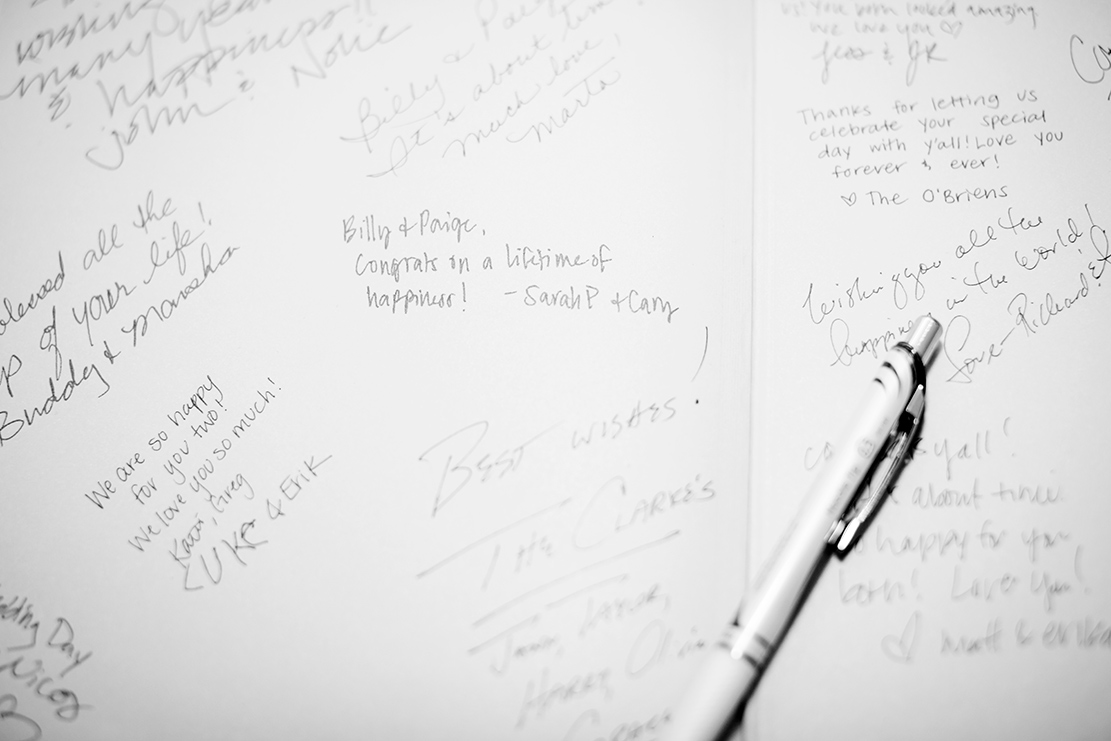 wishing
many years
& happiness!!
John & Novie
Billy & Paige
It's about time
much love,
Marta
us! You both looked amazing
we love you ♡
Jess & JK
Thanks for letting us
celebrate your special
day with y'all! Love you
forever & ever!
♡ The O'Briens
all the
of your life!
Buddy & Marsha
Billy & Paige,
Congrats on a lifetime of
happiness! - Sarah P + Cary
Wishing you all the
in the world!
Love - Richard &
We are so happy
for you two!
We love you so much!
Greg
& Erik
Best wishes!
The Clarke's
Taylor,
Harry, Olivia
y'all!
about time
happy for you
both! Love you!
♡ Matt &
Day